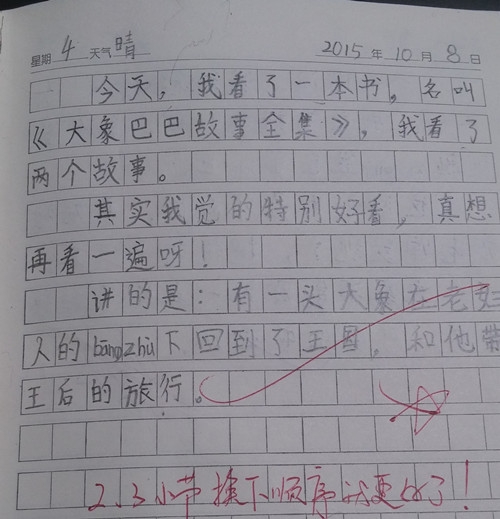 星期 4 天气 晴 2015 年 10 月 8 日
今天，我看了一本书，名叫
《大象巴巴故事全集》，我看了
两个故事。
其实我觉的特别好看，真想
再看一遍呀！
讲的是：有一头大象在老妇
人的bāngzhù下回到了王国，和他带
王后的旅行。
2、3小节换下顺序就更好了！